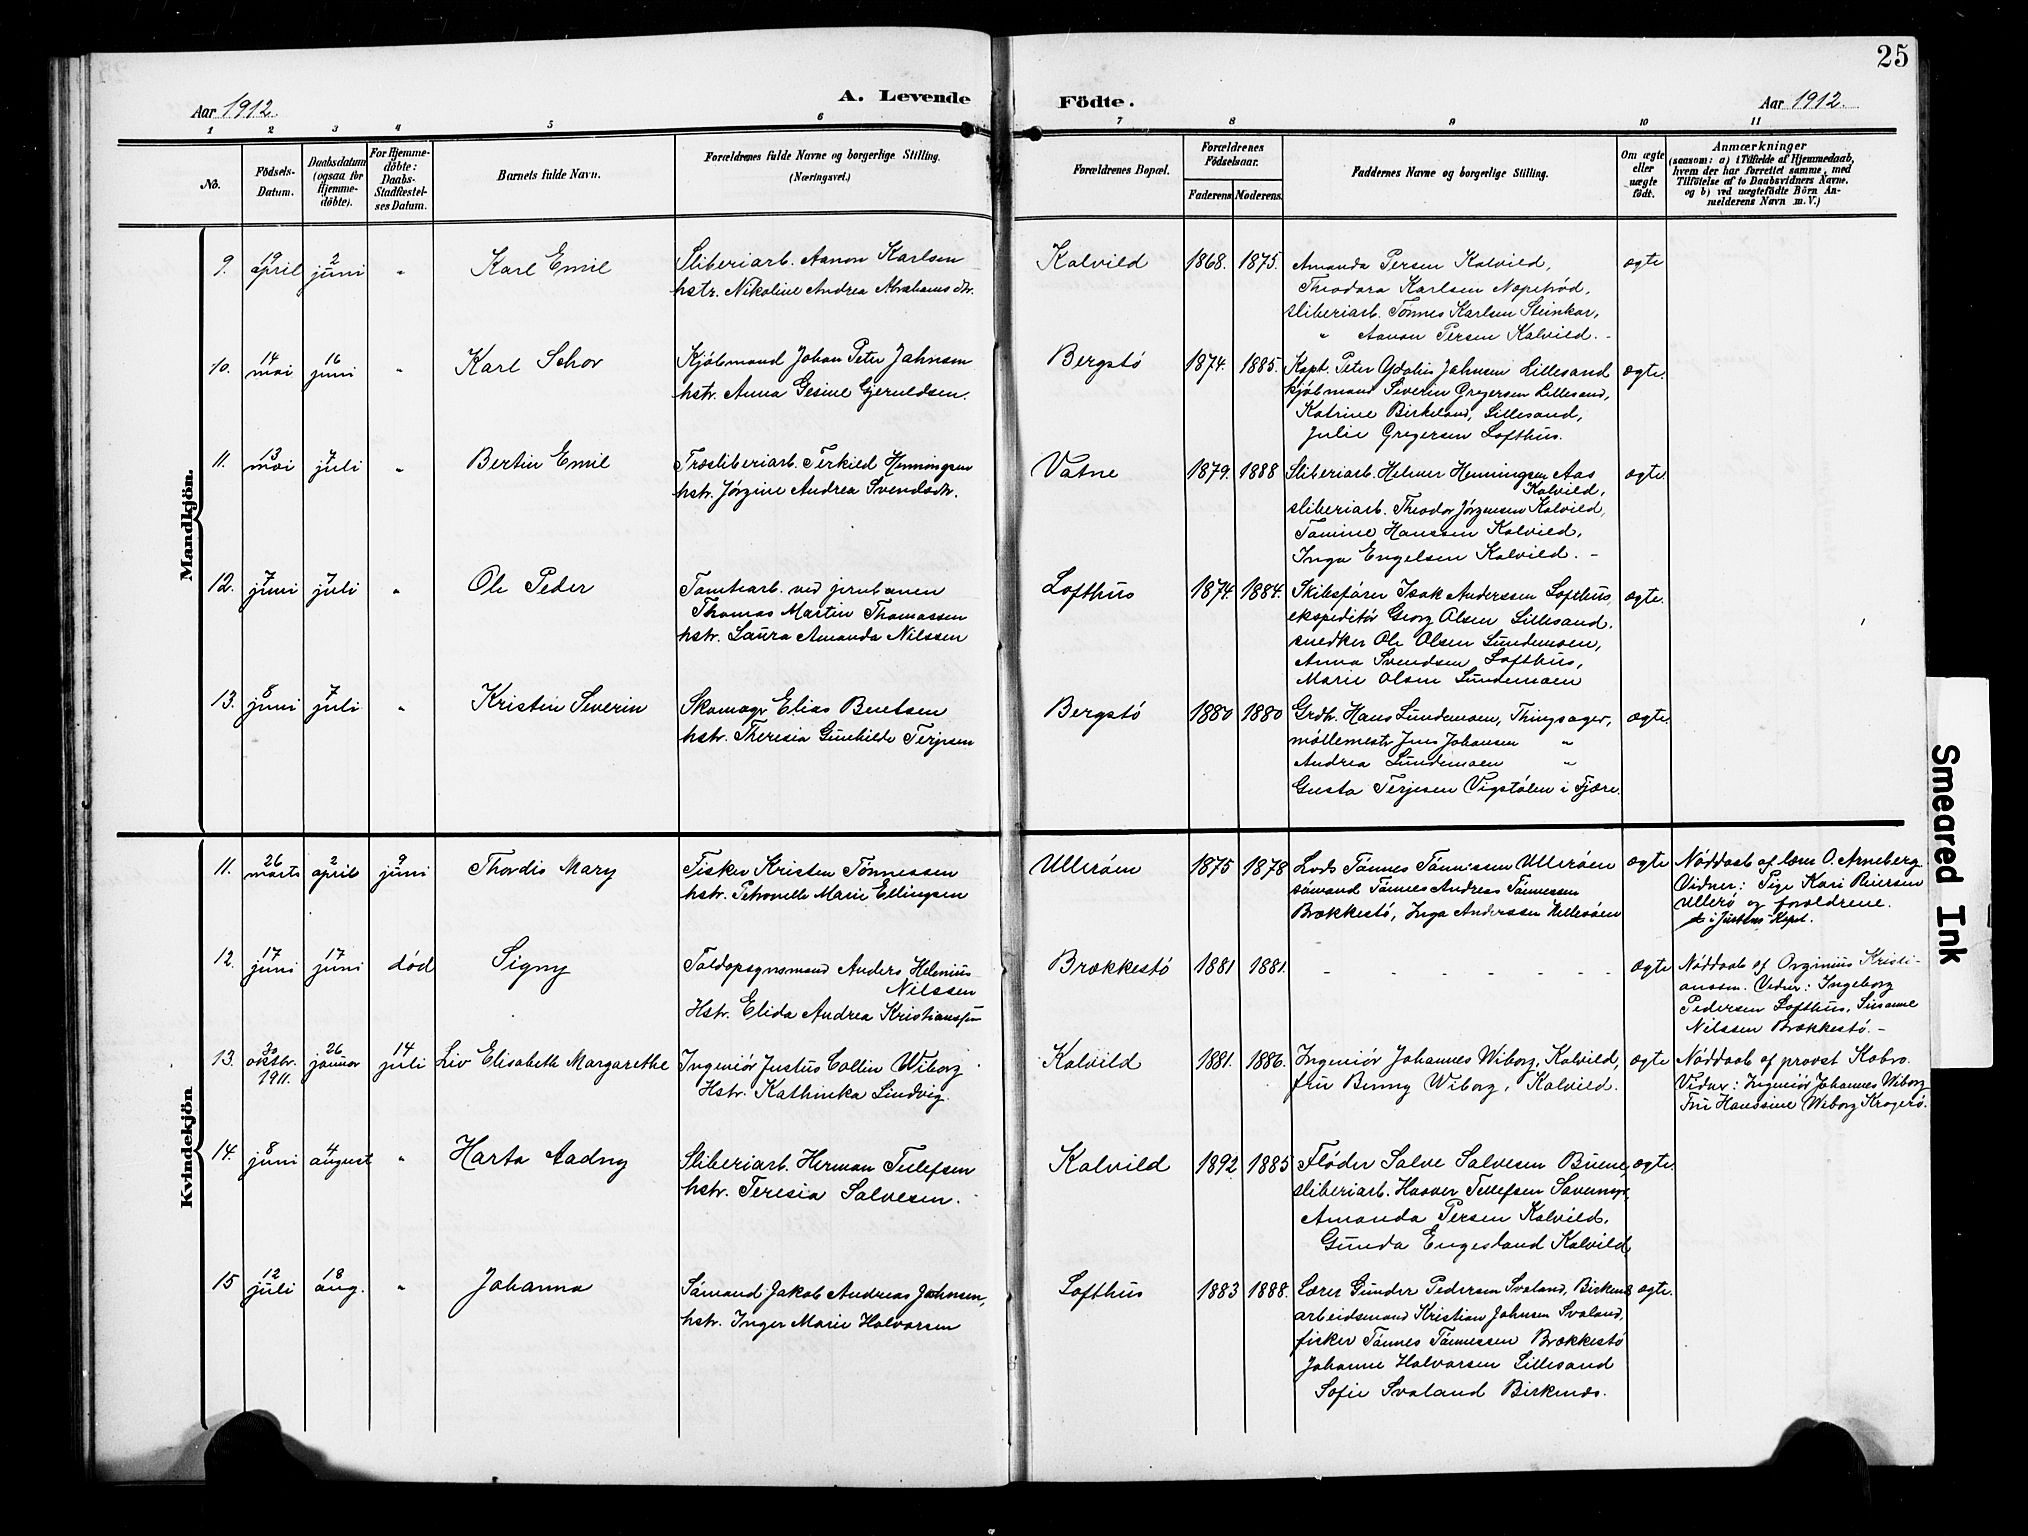 25
Aar 1912.
A. Levende Födte.
Aar 1912.
1 2 3 4 5 6 7 8 9 10 11
No.
Födsels-Datum.
Daabsdatum (ogsaa for Hjemme-döbte).
For Hjemme-döbte: Daabs-Stadfæstel-ses Datum.
Barnets fulde Navn.
Forældrenes fulde Navne og borgerlige Stilling.
(Næringsvei.)
Forældrenes Bopæl.
Forældrenes Födselsaar.
Faderens Moderens.
Faddernes Navne og borgerlige Stilling.
Om ægte eller uægte födt.
Anmærkninger
(saasom: a) i Tilfælde af Hjemmedaab, hvem der har forrettet samme, med Tilföielse af to Daabsvidners Navne. og b) ved uægtefödte Börn Anmelderens Navn m. V.)
Mandkjön.
9. 19 april 2 juni " Karl Emil
Sliberiarb. Aanon Karlsen
hstr. Nikoline Andrea Abrahamsdtr.
Kalvild 1868. 1875.
Amanda Persen Kalvild,
Theodora Karlsen Næperød,
sliberiarb. Tønnes Karlsen Steinkar,
" Aanon Persen Kalvild. -
ægte
10. 14 mai 16 juni " Karl Schov
Kjøbmand Johan Peter Jahnsen
hstr. Anna Gesine Gjeruldsen.
Bergstø 1874. 1885.
Kapt. Peter Jahnsen Lillesand
kjøbmand Severin Gregersen Lillesand,
Katrine Birkeland, Lillesand,
Julie Gregersen Lofthus.
ægte.
11. 13 mai 7 juli " Bertin Emil
Træsliberiarb. Terkild Henningsen
hstr. Jørgine Andrea Svendsdtr.
Vatne 1879. 1888
Sliberiarb. Helmer Henningsen Aas
Kalvild,
sliberiarb. Theodor Jørgensen Kalvild,
Tomine Hanssen Kalvild,
Inga Engelsen Kalvild. -
ægte.
12. 7 juni 7 juli " Ole Peder
Tomtearb. ved jernbanen
Thomas Martin Thomassen
hstr. Laura Amanda Nilssen
Lofthus 1874. 1884.
Skibsfører Isak Anderssen Lofthus,
ekspeditør Georg Olsen Lillesand,
snedker Ole Olsen Lundemoen,
Anna Svendsen Lofthus,
Marie Olsen Lundemoen
ægte.
13. 8 juni 7 juli " Kristen Severin
Skomagr Elias Bentsen
hstr. Theresia Gunhilde Terjesen
Bergstø 1880 1880
Grdb. Hans Lundemoen, Thingsager,
møllemestr Jens Johansen "
Andrea Lundemoen "
Gusta Terjesen Vigstølen i Fjære.
ægte.
Kvindekjön
11. 26 marts 2 april 9 juni Thordis Mary
Fisker Kristen Tønnessen
hstr. Petronelle Marie Ellingsen
Ullerøen 1875 1878
Lods Tønnes Tønnessen Ullerøen
sømand Tønnes Andreas Tønnessen
Brækkestø, Inga Anderssen Ullerøen
ægte
Nøddaab af lærer O. Arneberg
Vidner: Pige Kari Reiersen
Ullerø og forældrene.
12. 17 juni 17 juni død Signy
Toldopsynsmand Anders Helenius
Nilssen
Hstr. Elida Andrea Kristianssen
Brækkestø 1881 1881.
- - - - - - -
ægte
Nøddaab af Orginius Kristi-
anssen. Vidner: Ingeborg
Pedersen Lofthus, Susanne
Nilssen Brækkestø. -
13. 30 oktbr. 1911. 26 januar 14 juli Liv Elisabeth Margarethe
Ingeniør Justus Collin Wiborg
Hstr. Kathinka Lindvig.
Kalvild 1881. 1886.
Ingeniør Johannes Wiborg, Kalvild,
fru Benny Wiborg, Kalvild.
ægte
Nøddaab af provst Kobro.
Vidner: Ingeniør Johannes Wiborg
Fru Hanssine Wiborg Kragerø.
14. 8 juni 4 august " Harta Aadny
Sliberiarb. Herman Tellefsen
hstr. Teresia Salvesen.
Kalvild 1892 1885
Fløder Salve Salvesen Buene,
sliberiarb. Haaver Tellefsen
Amanda Persen Kalvild,
Gunda Engesland Kalvild
ægte.
15 12 juli 18 aug. " Johanna
Sømand Jakob Andreas Jahnsen,
hstr. Inger Marie Halvorsen
Lofthus 1883 1888.
Lærer Gunder Pedersen Svaland, Birkenes
arbeidsmand Kristian Johnsen Svaland,
fisker Tønnes Tønnessen Brækkestø
Johanne Halvorsen Lillesand
Sofie Svaland Birkenes.
ægte.
Smeared Ink